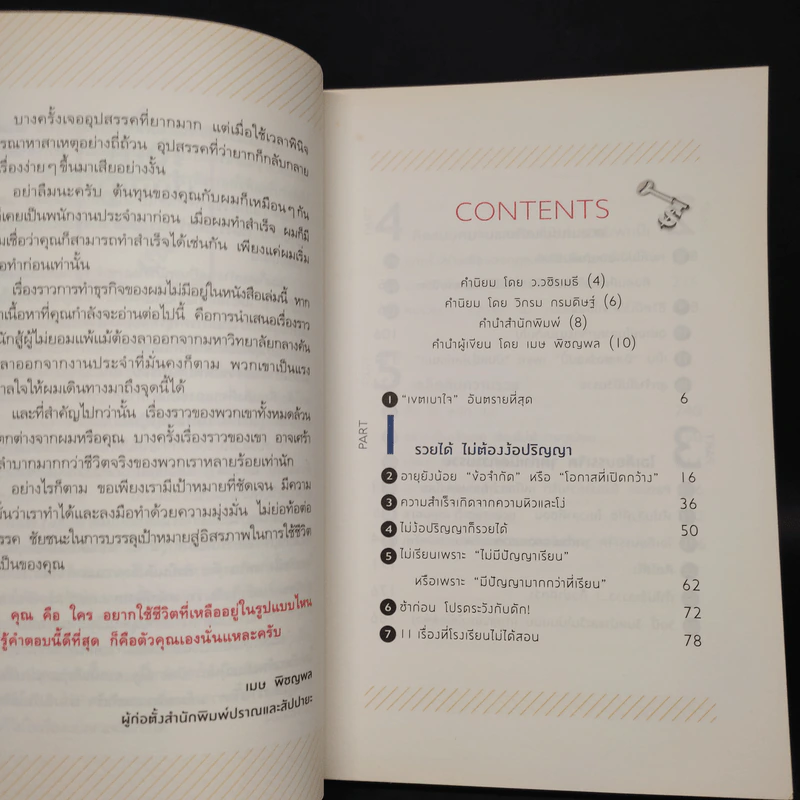 บางครั้งเจออุปสรรคที่ยากมาก แต่เมื่อใช้เวลาพินิจ
รณาหาสาเหตุอย่างถี่ถ้วน อุปสรรคที่ว่ายากก็กลับกลาย
รื่องง่ายๆ ขึ้นมาเสียอย่างงั้น
อย่าลืมนะครับ ต้นทุนของคุณกับผมก็เหมือนๆ กัน
เคยเป็นพนักงานประจำมาก่อน เมื่อผมทำสำเร็จ ผมก็มี
เชื่อว่าคุณก็สามารถทำสำเร็จได้เช่นกัน เพียงแค่ผมเริ่ม
ทำก่อนเท่านั้น
เรื่องราวการทำธุรกิจของผมไม่มีอยู่ในหนังสือเล่มนี้ หาก
เนื้อหาที่คุณกำลังจะอ่านต่อไปนี้ คือการนำเสนอเรื่องราว
นักสู้ผู้ไม่ยอมแพ้แม้ต้องลาออกจากมหาวิทยาลัยกลางคัน
ลาออกจากงานประจำที่มั่นคงก็ตาม พวกเขาเป็นแรง
าลใจให้ผมเดินทางมาถึงจุดนี้ได้
และที่สำคัญไปกว่านั้น เรื่องราวของพวกเขาทั้งหมดล้วน
ตกต่างจากผมหรือคุณ บางครั้งเรื่องราวของเขา อาจเศร้า
ลำบากมากกว่าชีวิตจริงของพวกเราหลายร้อยเท่านัก
อย่างไรก็ตาม ขอเพียงเรามีเป้าหมายที่ชัดเจน มีความ
ั่นว่าเราทำได้และลงมือทำด้วยความมุ่งมั่น ไม่ย่อท้อต่อ
รรค ชัยชนะในการบรรลุเป้าหมายสู่อิสรภาพในการใช้ชีวิต
เป็นของคุณ
คุณ คือ ใคร อยากใช้ชีวิตที่เหลืออยู่ในรูปแบบไหน
รู้คำตอบนี้ดีที่สุด ก็คือตัวคุณเองนั่นแหละครับ
เมษ พิชญพล
ผู้ก่อตั้งสำนักพิมพ์ปราณและสัปปายะ
CONTENTS
คำนิยม โดย ว.วชิรเมธี (4)
คำนิยม โดย วิกรม กรมดิษฐ์ (6)
คำนำสำนักพิมพ์ (8)
คำนำผู้เขียน โดย เมษ พิชญพล (10)
1 "เขตเบาใจ" อันตรายที่สุด 6
PART 1 รวยได้ ไม่ต้องง้อปริญญา
2 อายุยังน้อย "ข้อจำกัด" หรือ "โอกาสที่เปิดกว้าง" 16
3 ความสำเร็จเกิดจากความหิวและโง่ 36
4 ไม่ง้อปริญญาก็รวยได้ 50
5 ไม่เรียนเพราะ "ไม่มีปัญญาเรียน"
หรือเพราะ "มีปัญญามากกว่าที่เรียน" 62
6 ช้าก่อน โปรดระวังกับดัก! 72
7 11 เรื่องที่โรงเรียนไม่ได้สอน 78